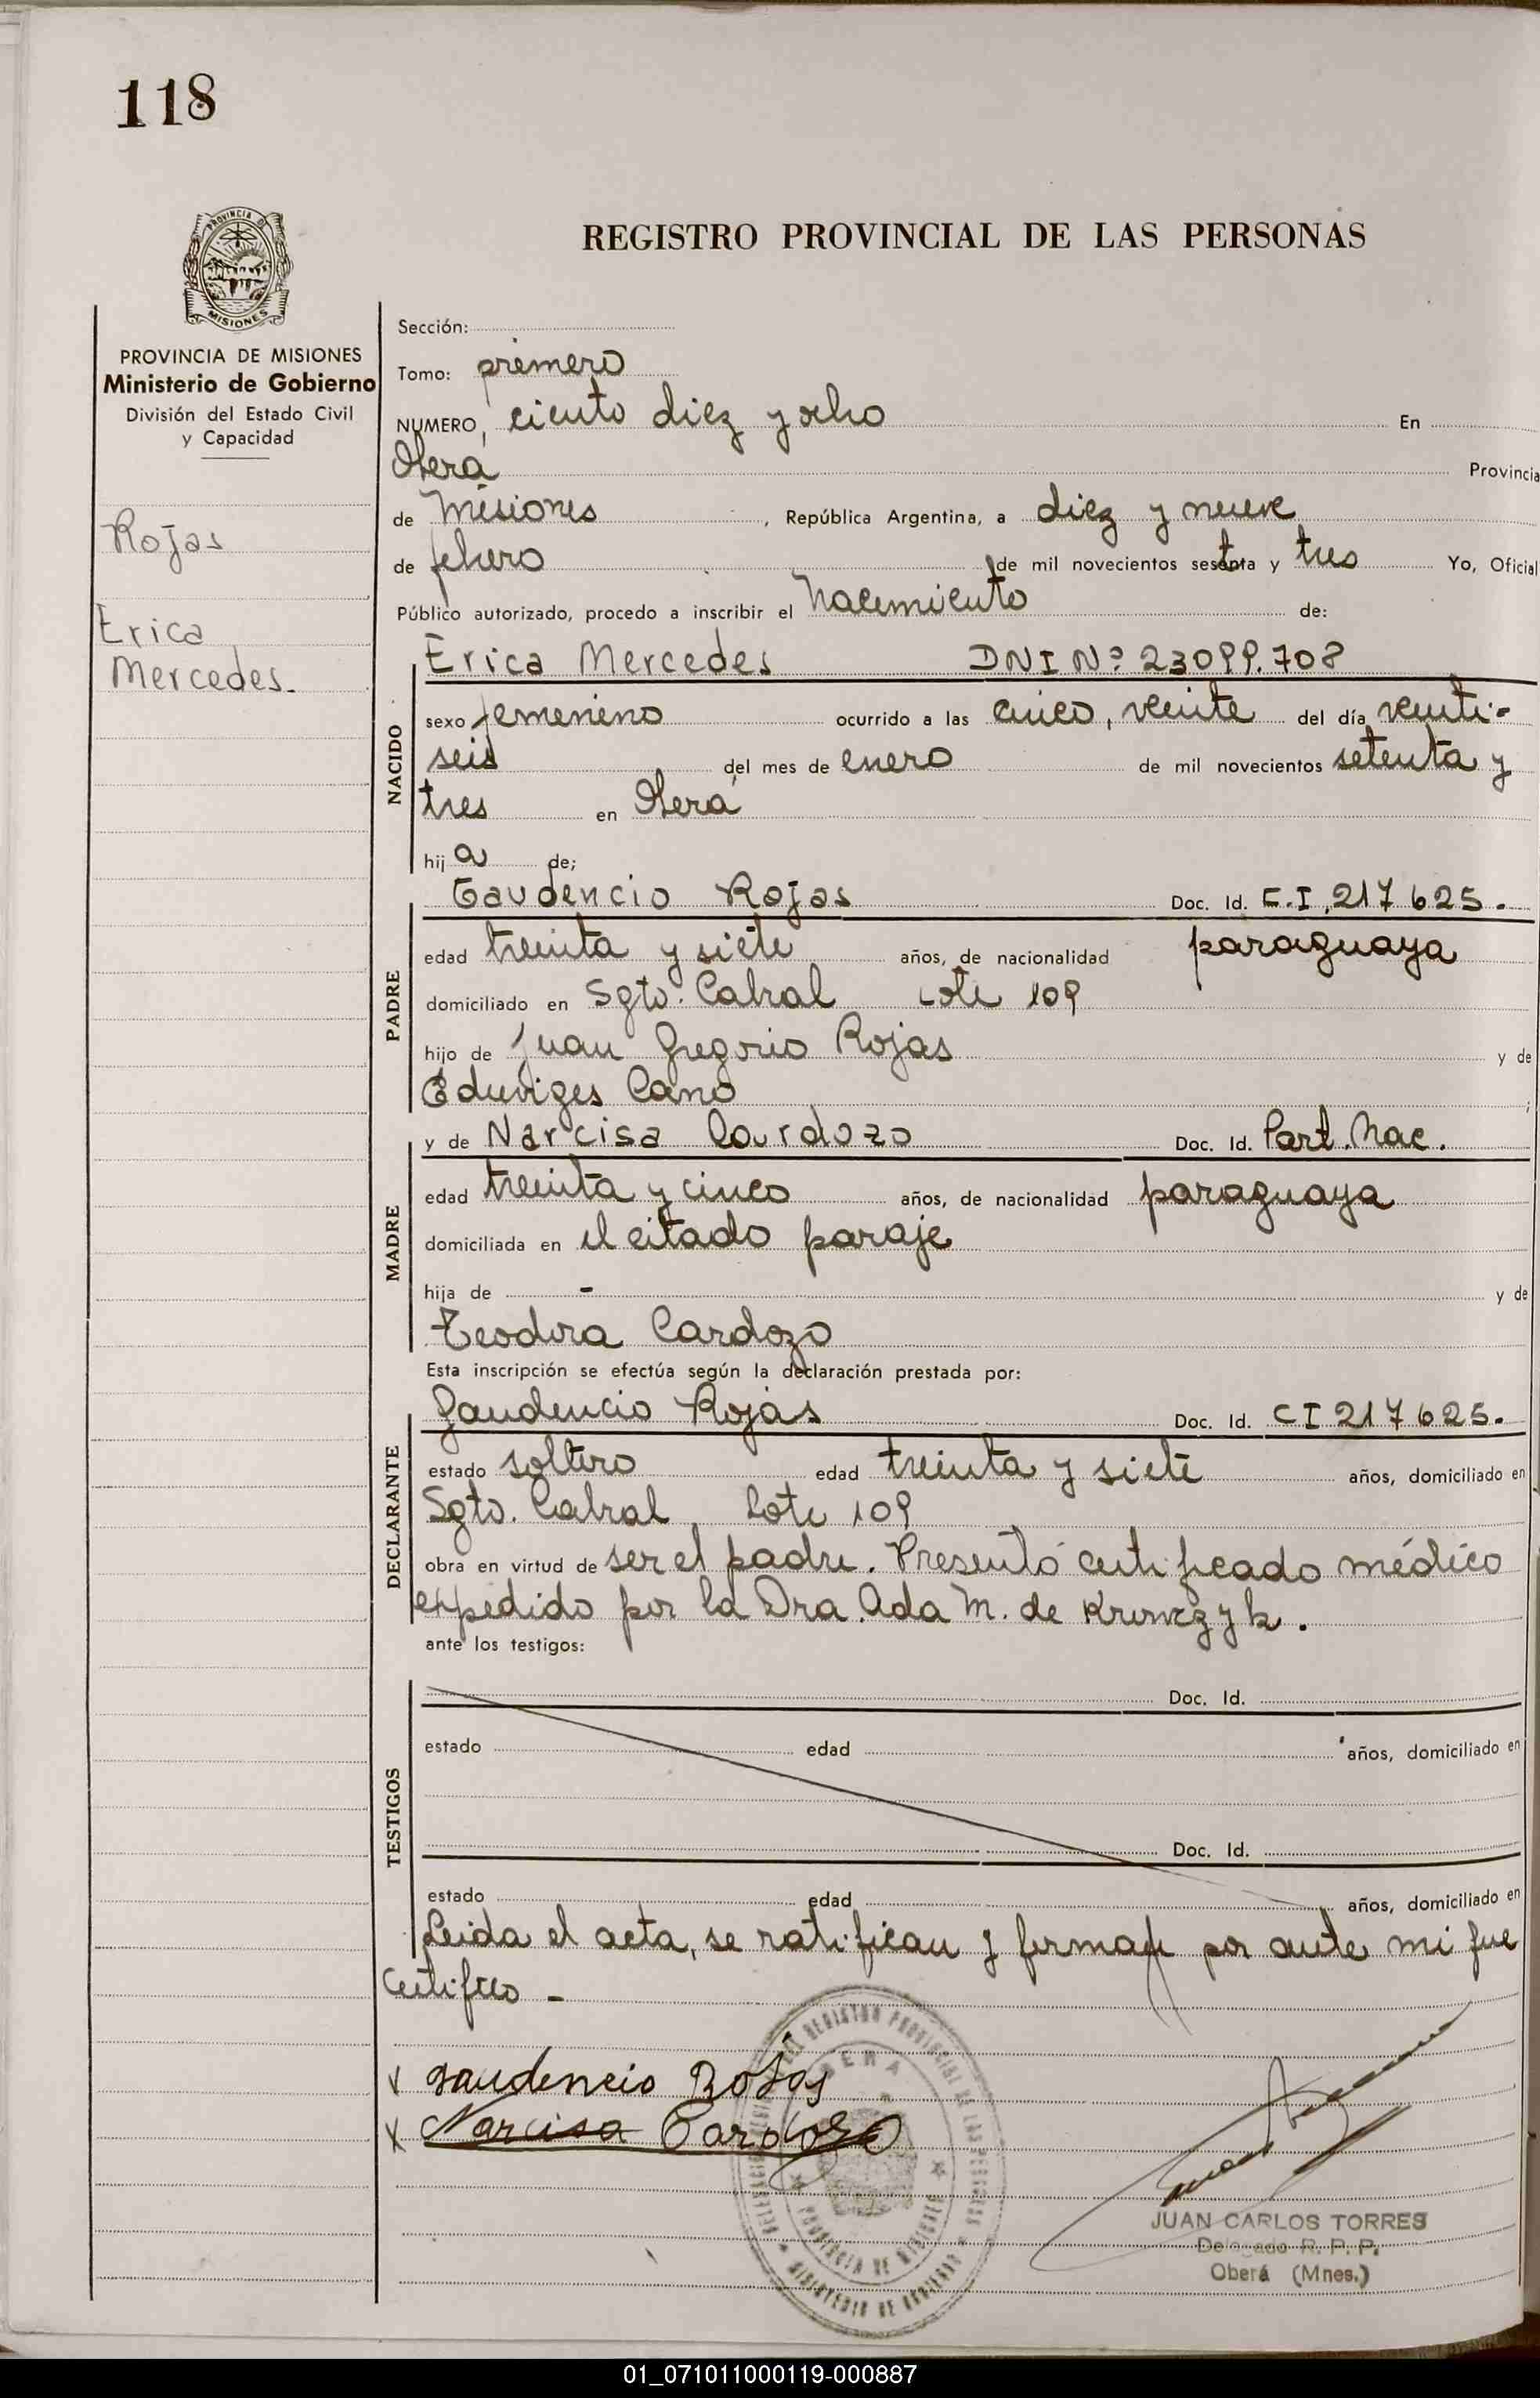 118
REGISTRO PROVINCIAL DE LAS PERSONAS
PROVINCIA DE MISIONES
Ministerio de Gobierno
División del Estado Civil
y Capacidad
Rojas
Erica
Mercedes.
Sección:
Tomo: primero
NUMERO, ciento diez y ocho En
Oberá Provincia
de Misiones, República Argentina, a diez y nueve
de febrero de mil novecientos setenta y tres Yo, Oficial
Público autorizado, procedo a inscribir el Nacimiento de:
NACIDO
Erica Mercedes DNI Nº 23099.708
sexo femenino ocurrido a las cinco, veinte del día veinti-
seis del mes de enero de mil novecientos setenta y
tres en Oberá
hija de;
PADRE
Gaudencio Rojas Doc. Id. C.I. 217625.
edad treinta y siete años, de nacionalidad paraguaya
domiciliado en Sgto. Cabral Lote 109
hijo de Juan Gregorio Rojas y de
Eduviges Cano;
MADRE
y de Narcisa Cardozo Doc. Id. Part. Nac.
edad treinta y cinco años, de nacionalidad paraguaya
domiciliada en el citado paraje
hija de - y de
Teodora Cardozo
Esta inscripción se efectúa según la declaración prestada por:
DECLARANTE
Gaudencio Rojas Doc. Id. CI 217625.
estado soltero edad treinta y siete años, domiciliado en
Sgto. Cabral Lote 109
obra en virtud de ser el padre. Presentó certificado médico
expedido por la Dra. Ada M. de
ante los testigos:
TESTIGOS
Doc. Id.
estado edad años, domiciliado en
Doc. Id.
estado edad años, domiciliado en
Leida el acta, se ratifican y firman por ante mi que
certifico -
x Gaudencio Rojas
x Narcisa Cardozo
JUAN CARLOS TORRES
Delegado R. P. P.
Oberá (Mnes.)
01_071011000119-000887